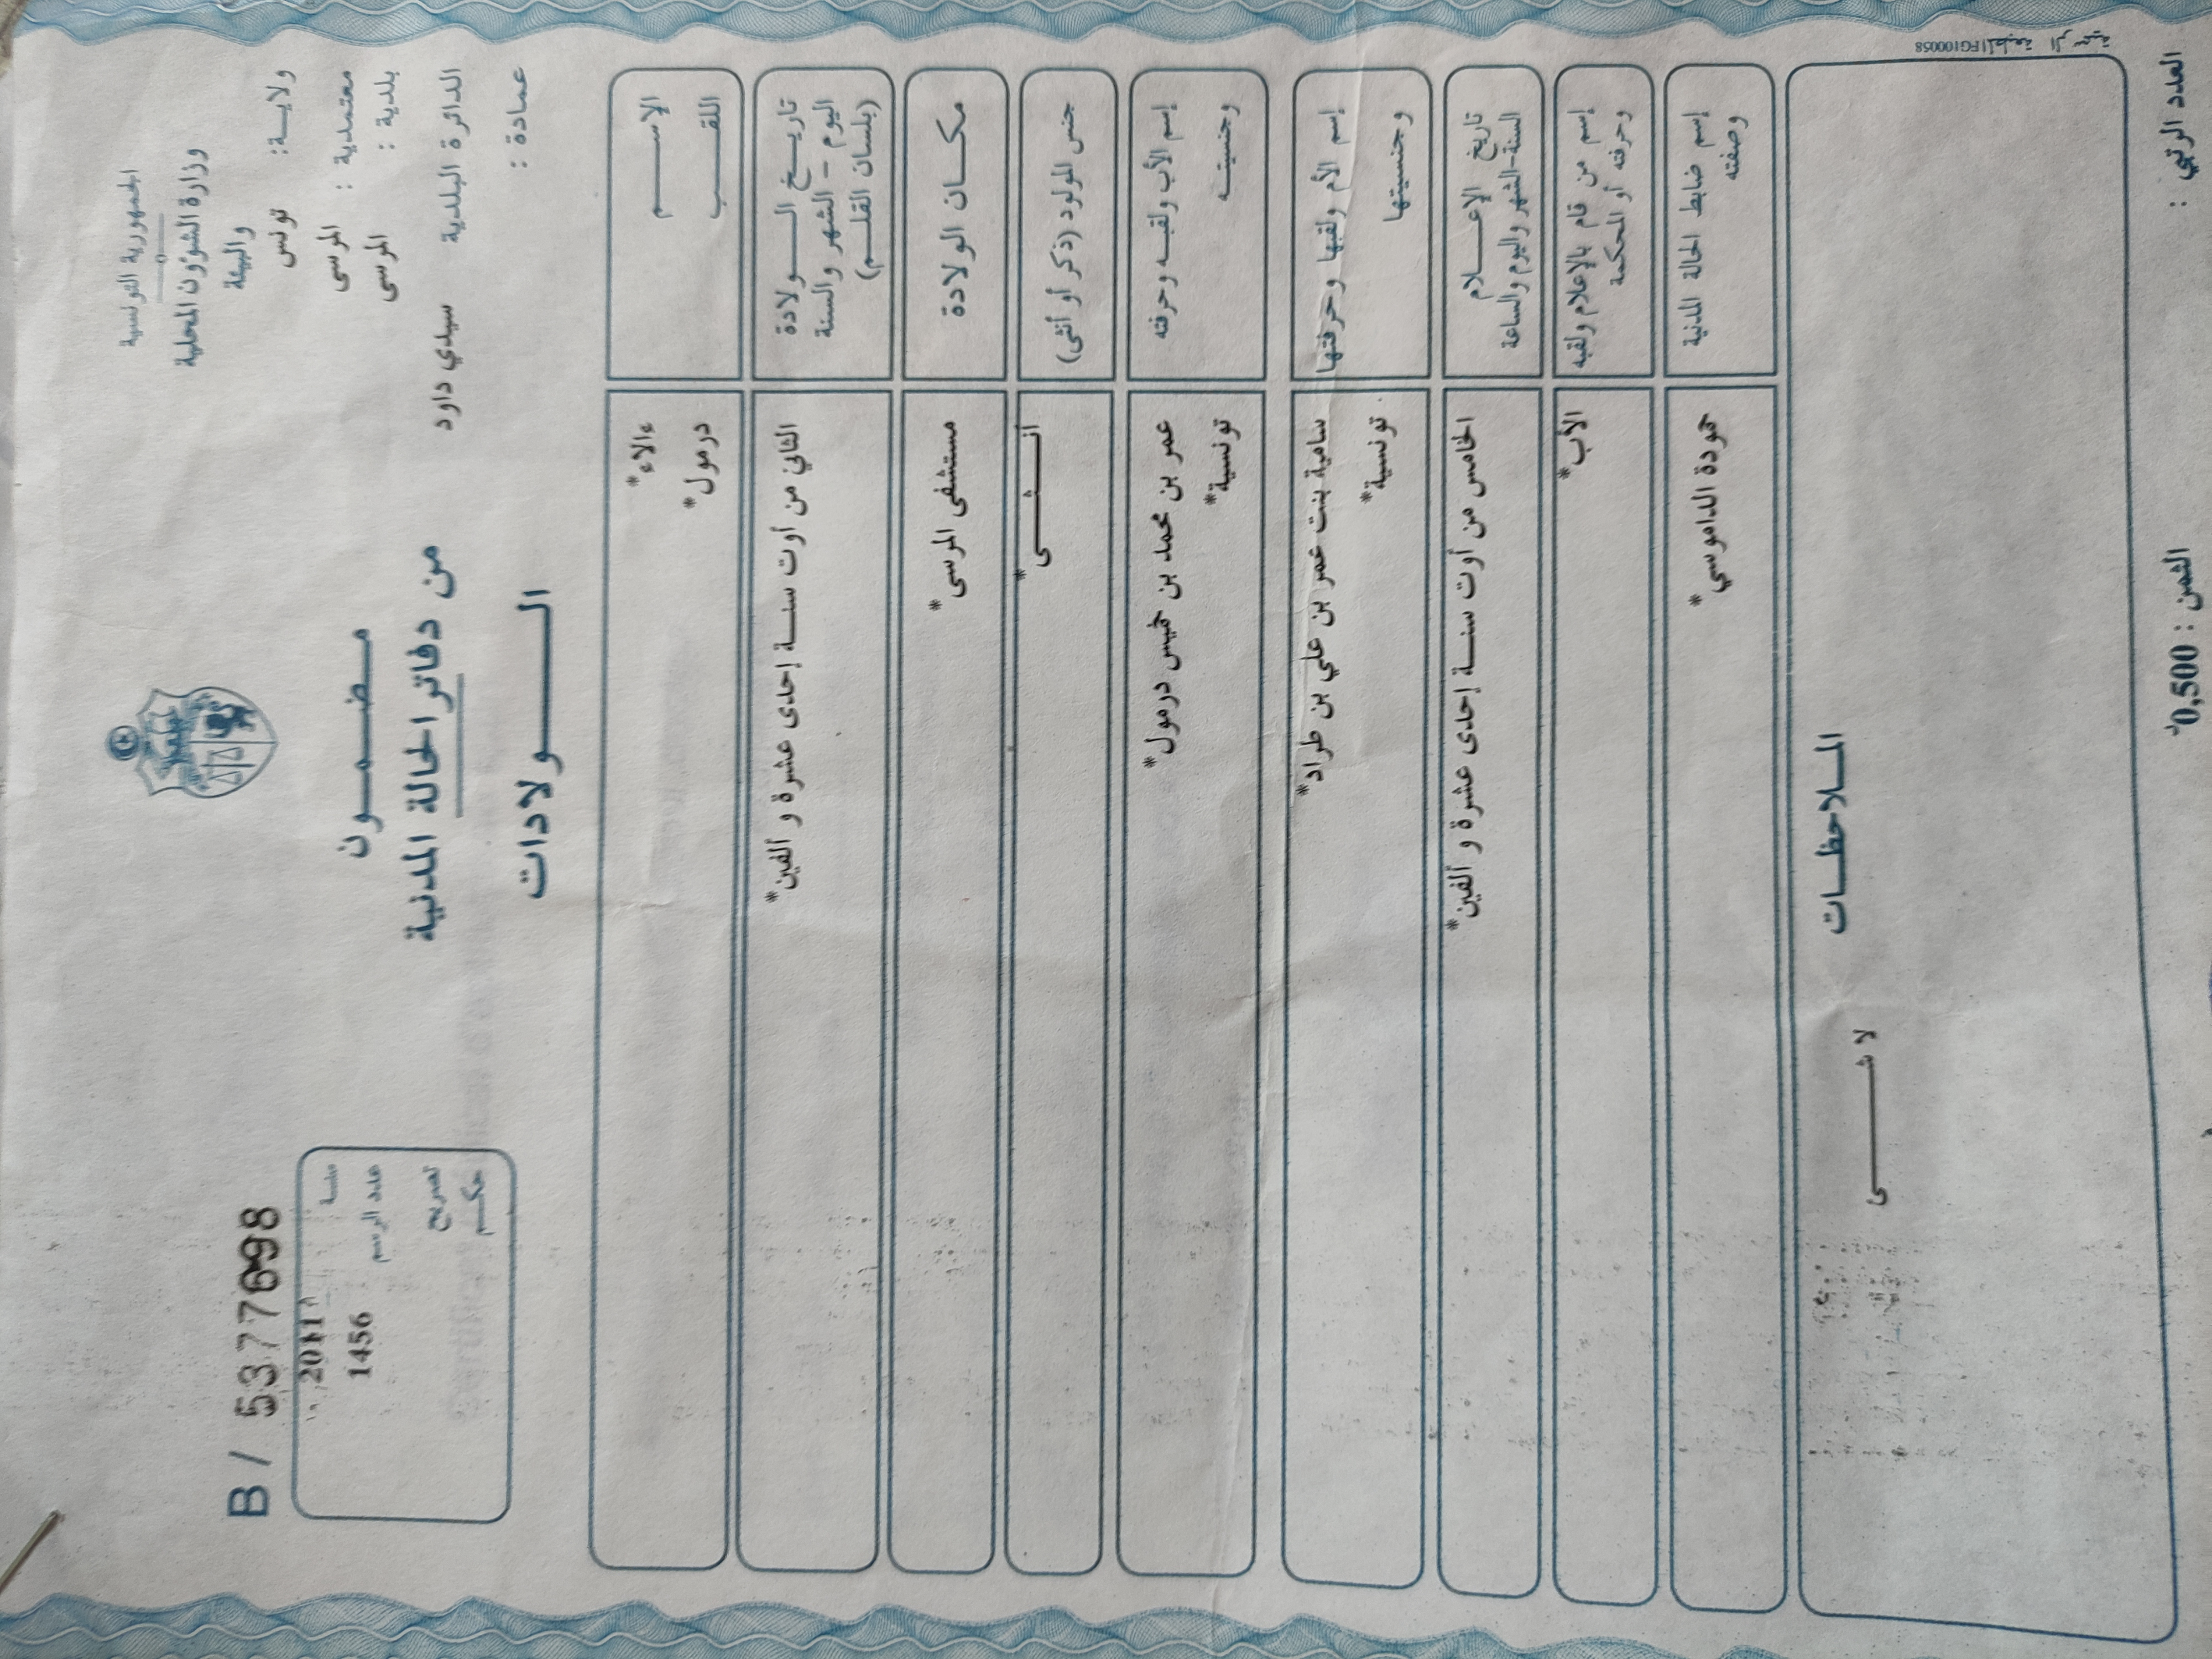 الجمهورية التونسية
وزارة الشؤون المحلية
والبيئة
ولايـــة: تونس
معتمدية : المرسى
بلدية : المرسى
الدائرة البلدية سيدي داود
عمادة :
مـضـمـــون
من دفاتر الحالة المدنية
الـــــولادات
B / 5377698
سنــة 2011
عدد الرسم 1456
تصريح
حكـــم
الإســـــم ءالاء*
اللقــــب درمول*
تاريــــخ الــــــولادة
اليوم – الشهر والسنة
(بلسان القلـــم)
الثاني من أوت سنــــة إحدى عشرة و ألفين*
مكـــان الولادة
مستشفى المرسى*
جنس المولود (ذكر أو أنثى)
انـــــثـــــى*
إسم الأب ولقبـــه وحرفته
وجنسيتــــه
عمر بن محمد بن خميس درمول*
تونسية*
إسم الأم ولقبها وحرفتها
وجنسيتها
سامية بنت عمر بن علي بن طراد*
تونسية*
تاريخ الإعــــلام
السنة-الشهر واليوم والساعة
الخامس من أوت سنــــة إحدى عشرة و ألفين*
إسم من قام بالإعلام ولقبه
وحرفته أو المحكمة
الأب*
إسم ضابط الحالة المدنية
وصفته
حمودة الداموسي*
المــلاحظـــات
لا شـــــــى
المطبعة الرسمية FG100058
العدد الرتبي :
الثمن : 0,500